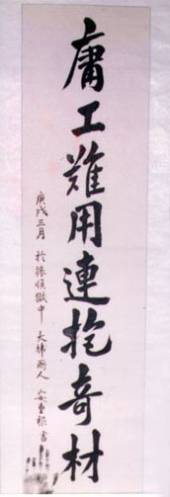 庸工難用連抱奇材
庚戌三月 於旅順獄中 大韓國人 安重根 書